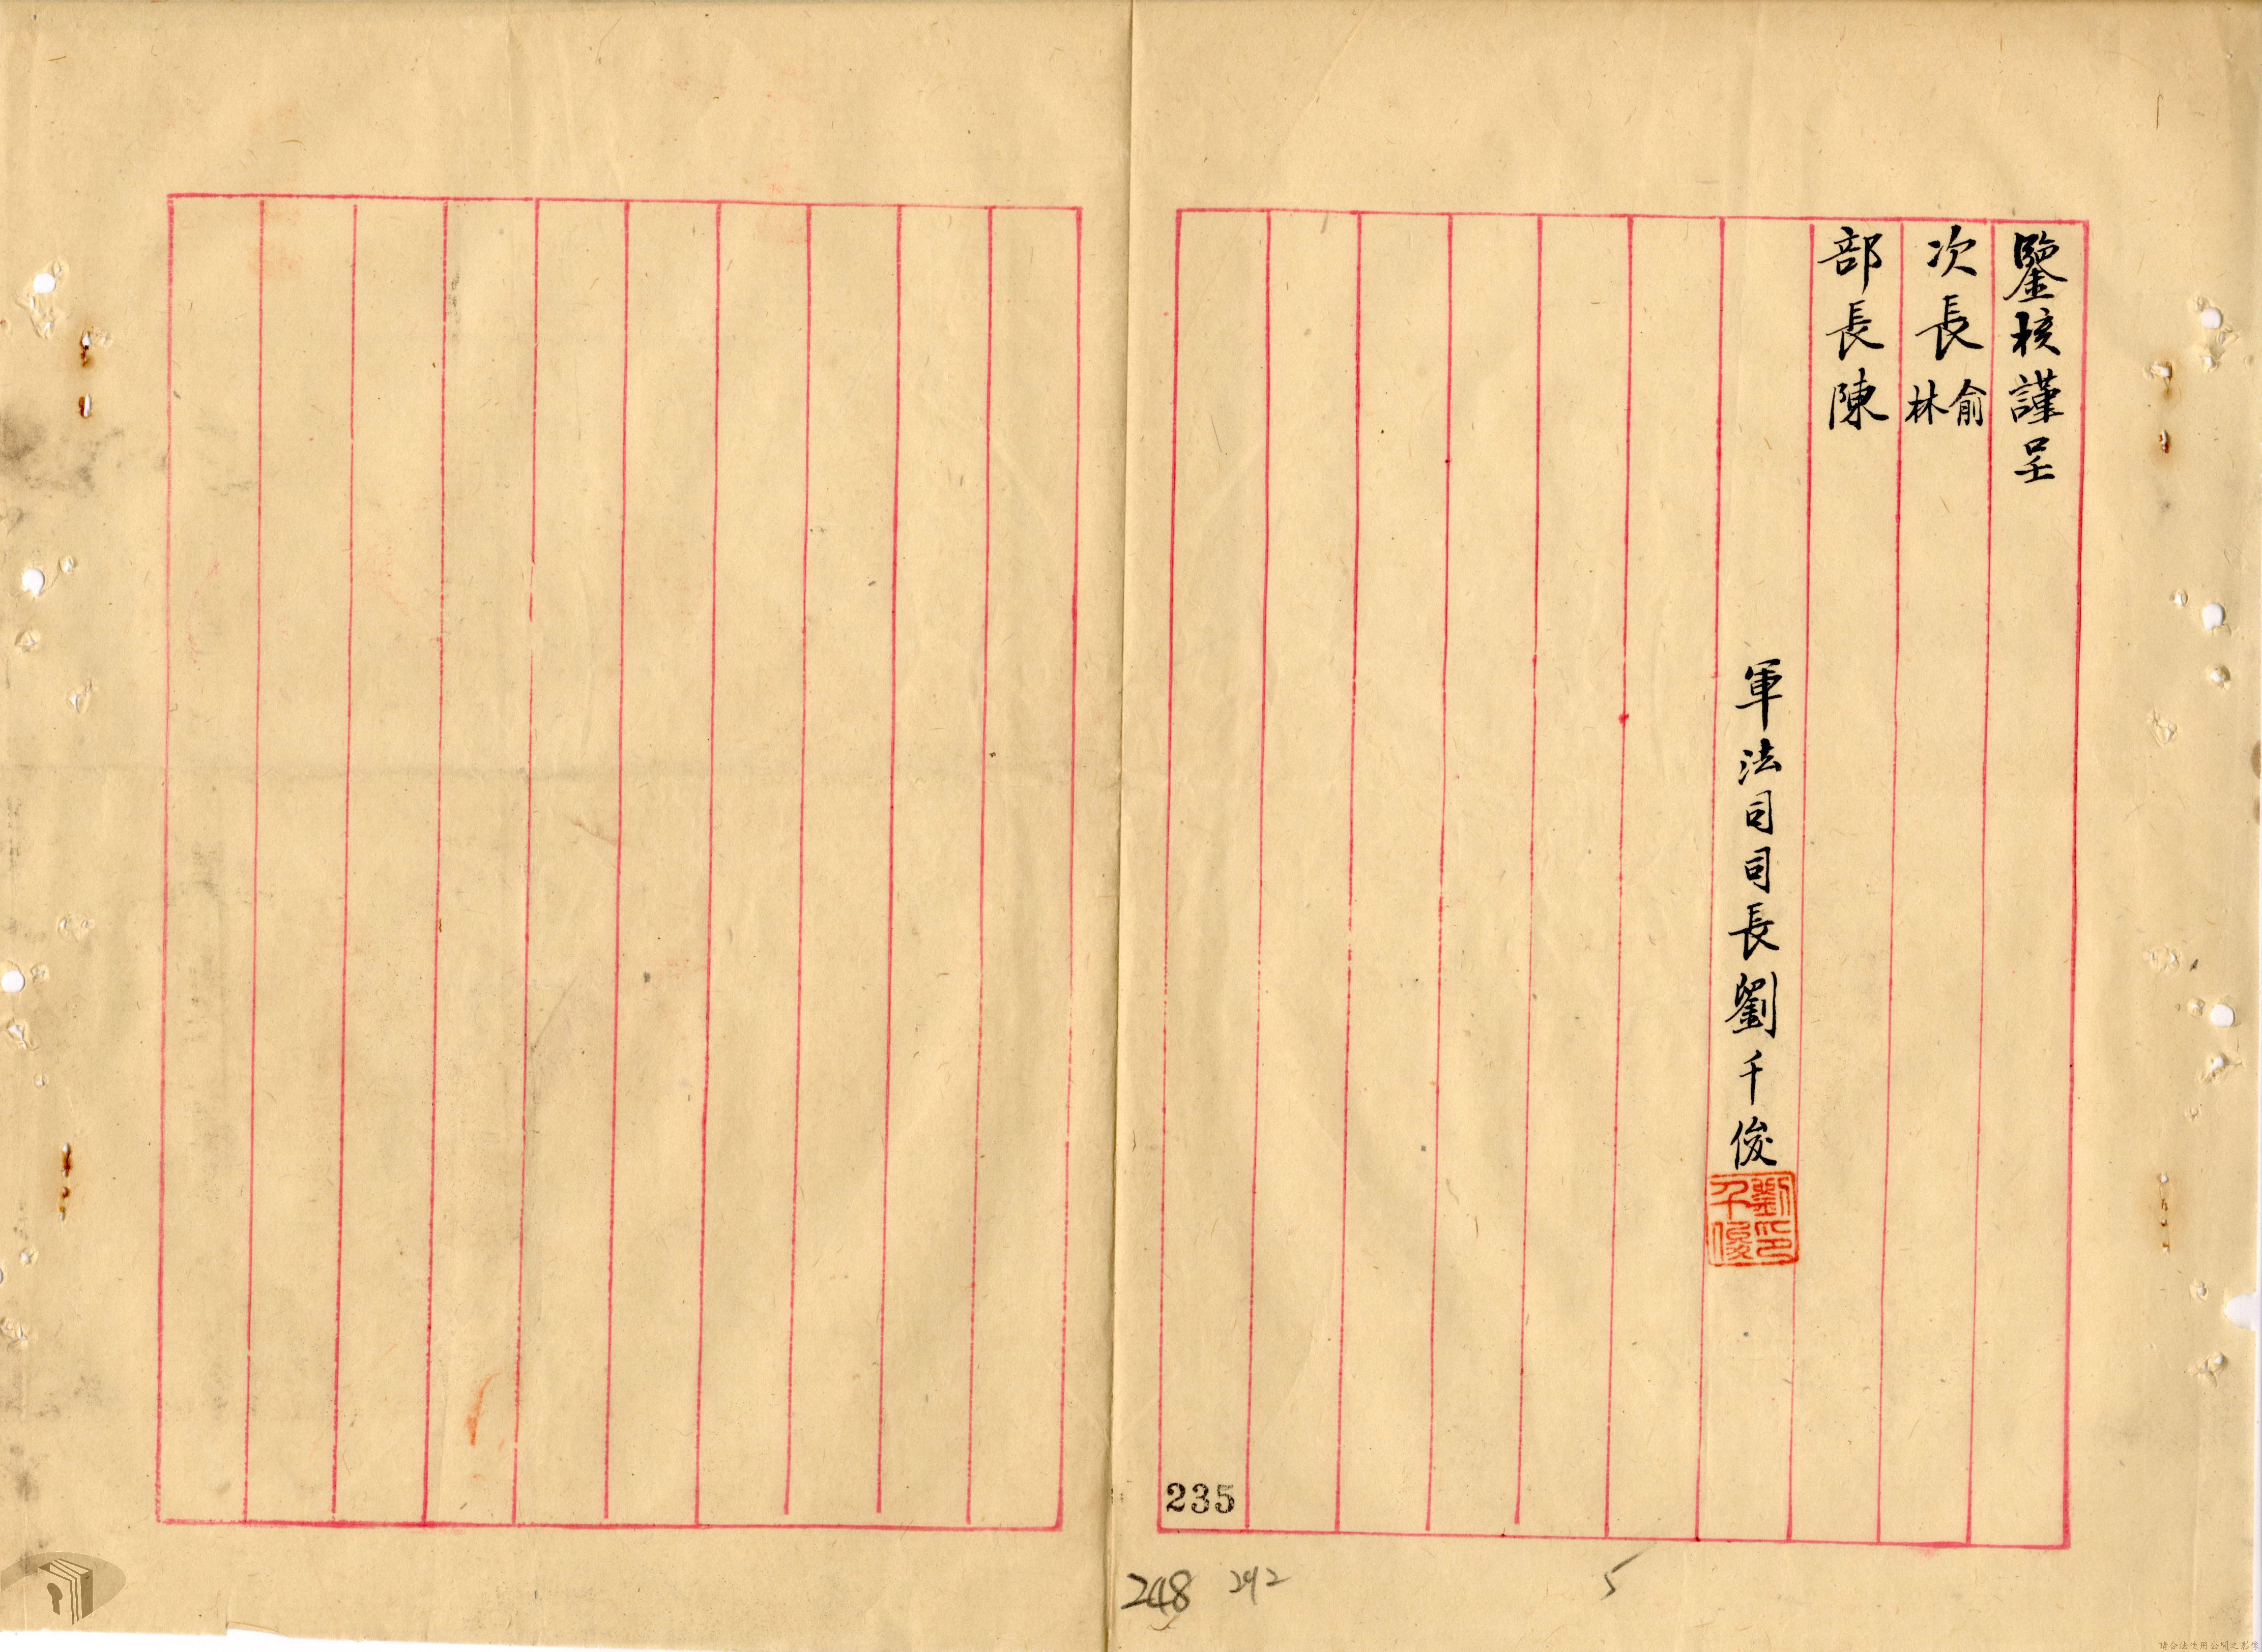 鑒核謹呈
次長俞林
部長陳
軍法司司長劉千俊
劉印
千俊
235
248
242
5
請合法使用公開之影像